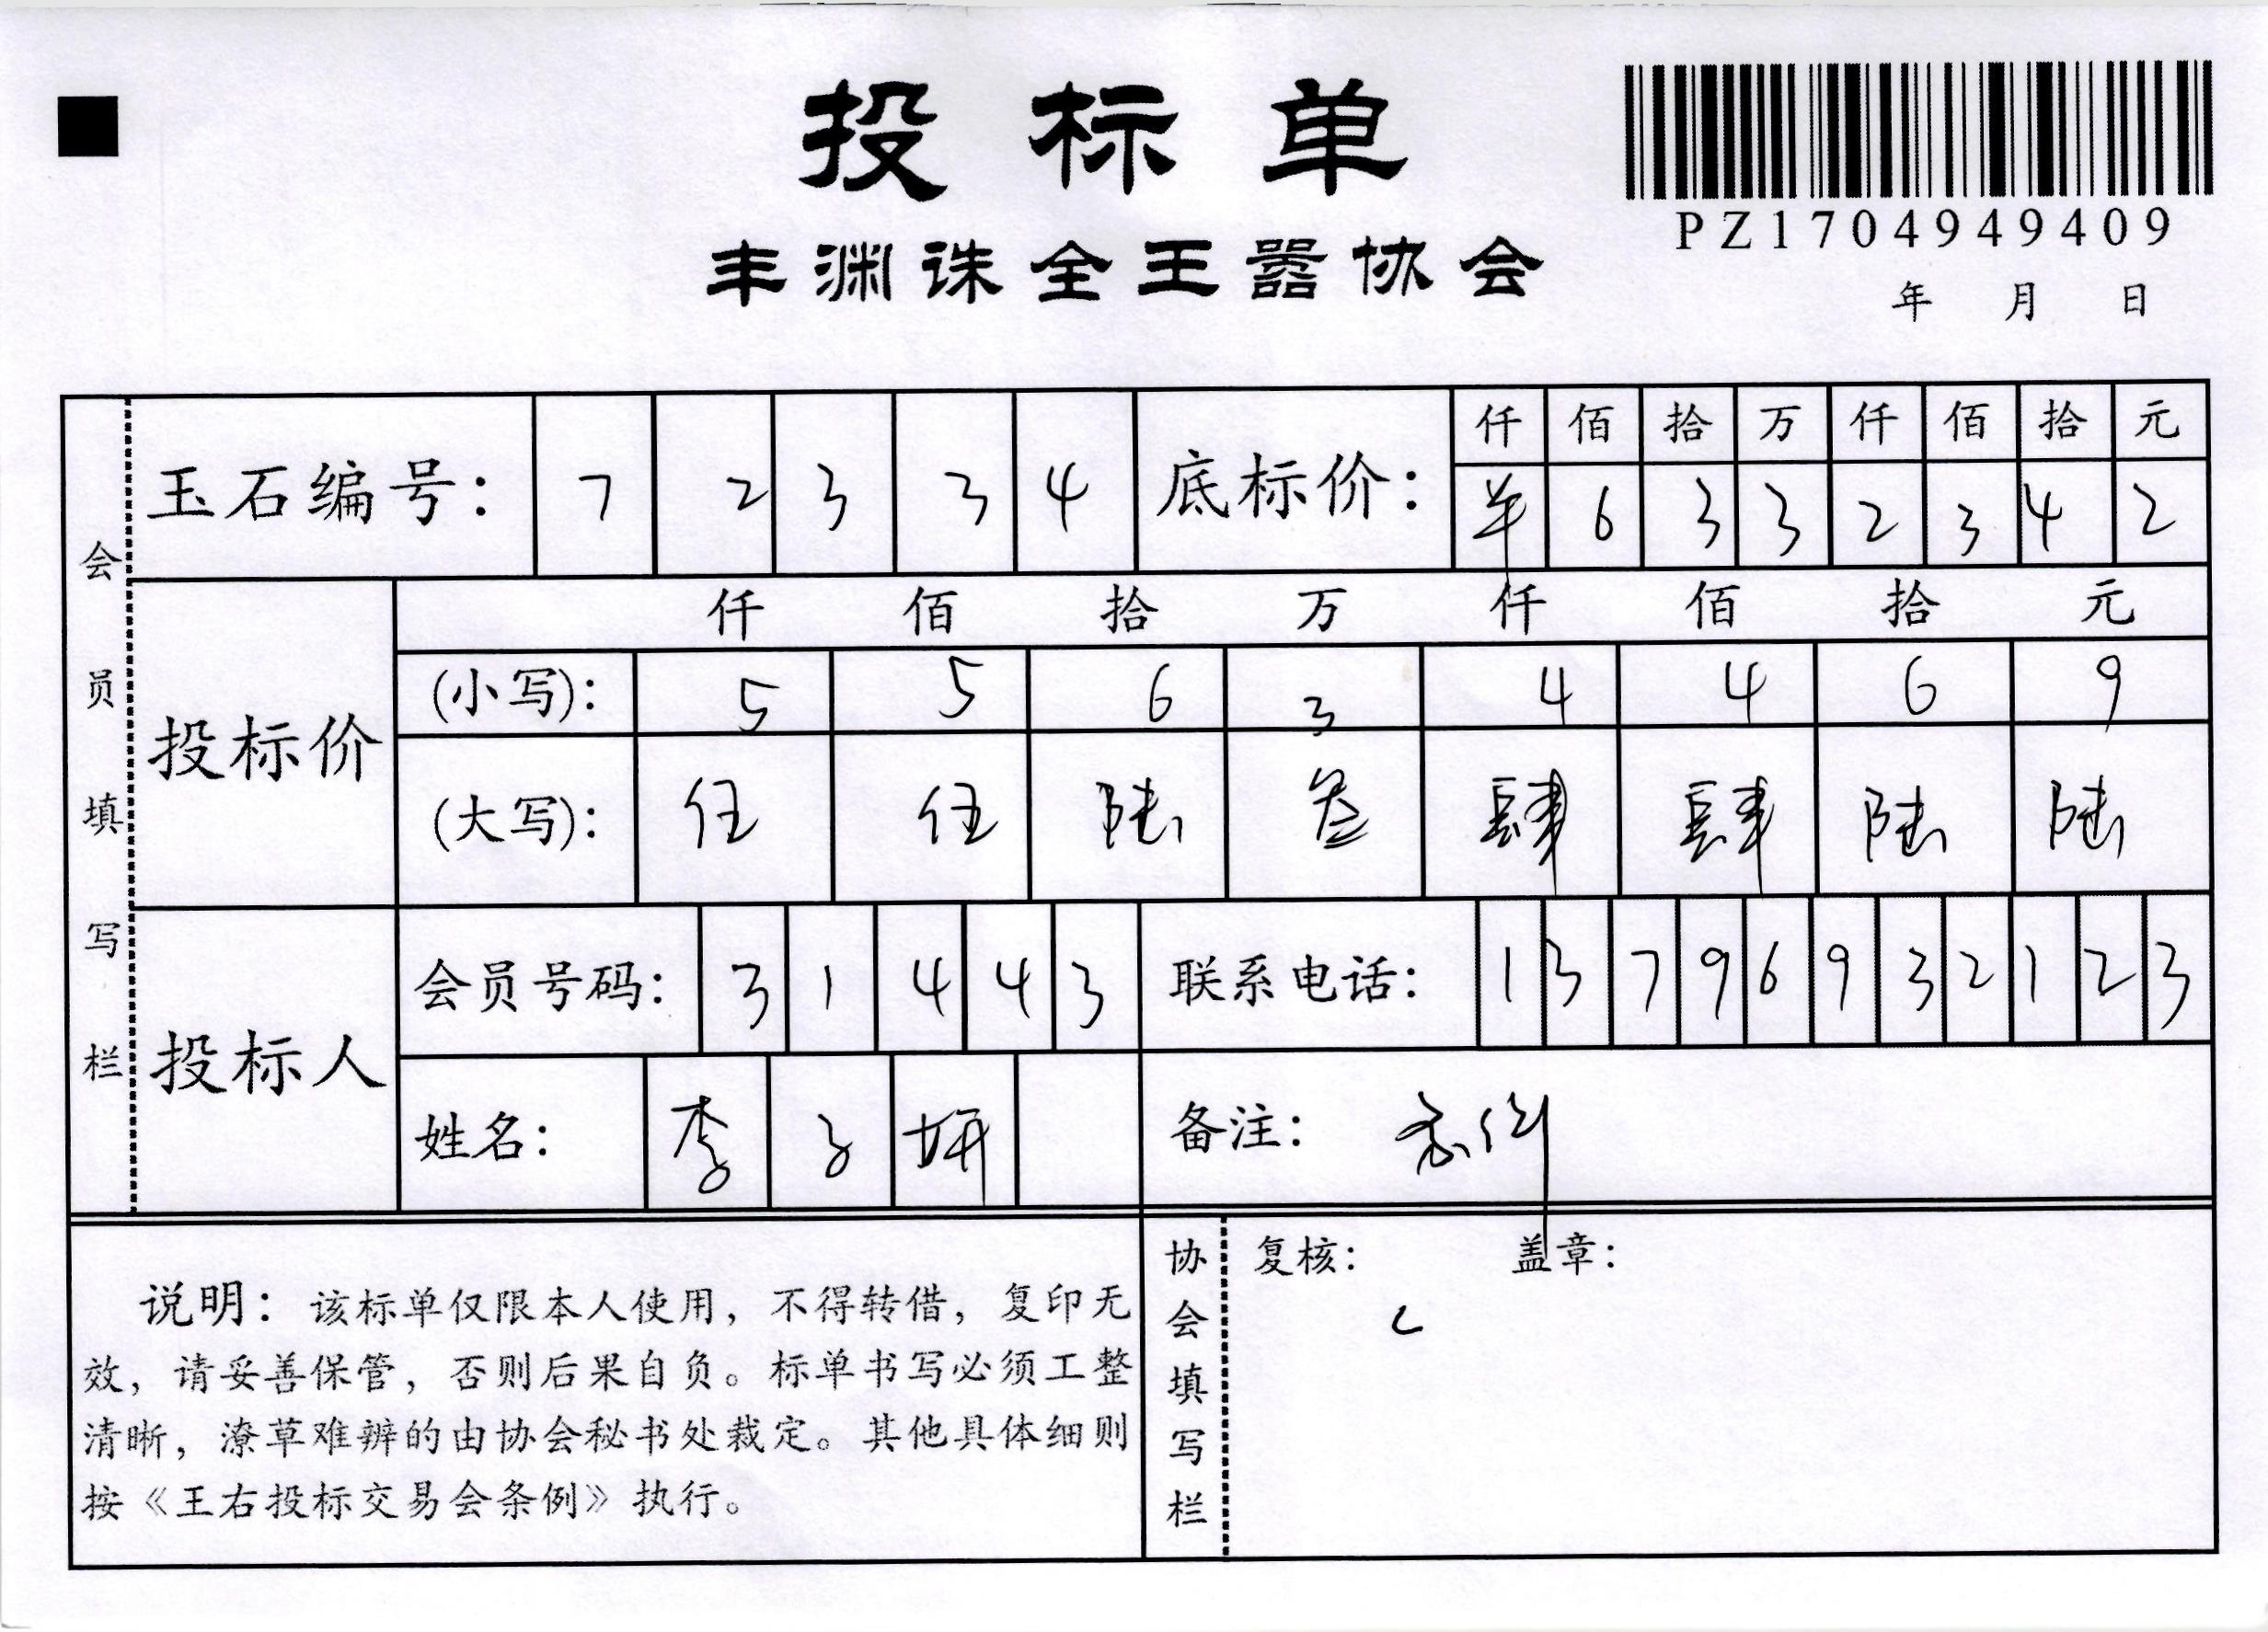 投标单
PZ1704949409
丰渊诛全王嚣协会
年 月 日
会员填写栏
玉石编号： 7 2 3 3 4
底标价：
仟 佰 拾 万 仟 佰 拾 元
羊 6 3 3 2 3 4 2
投标价
仟 佰 拾 万 仟 佰 拾 元
(小写)： 5 5 6 3 4 4 6 9
(大写)： 伍 伍 陆 叁 肆 肆 陆 陆
投标人
会员号码： 3 1 4 4 3
联系电话： 1 3 7 9 6 9 3 2 1 2 3
姓名： 李 子 妍
备注：
说明：该标单仅限本人使用，不得转借，复印无
效，请妥善保管，否则后果自负。标单书写必须工整
清晰，潦草难辨的由协会秘书处裁定。其他具体细则
按《王右投标交易会条例》执行。
协会填写栏
复核： 盖章：